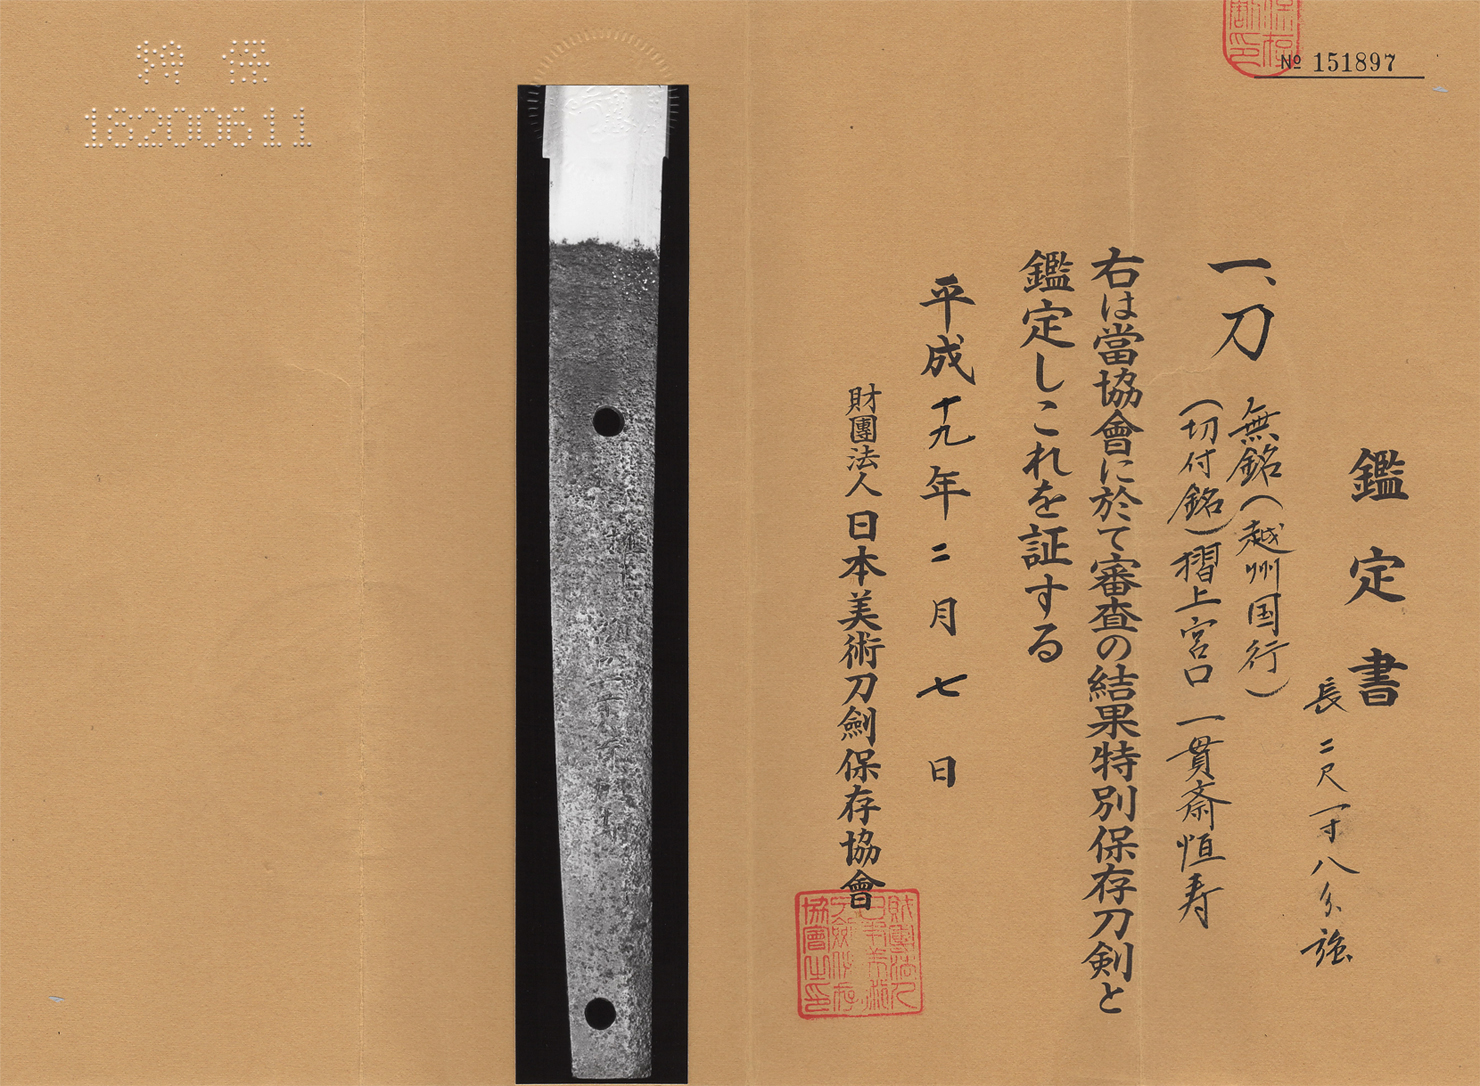 № 151897
鑑定書
長二尺一寸八分強
一、刀 無銘(越州国行)
(切付銘)摺上宮口一貫斎恒寿
右は當協會に於て審査の結果特別保存刀剣と
鑑定しこれを証する
平成十九年二月七日
財團法人日本美術刀劍保存協會
財團法人
日本美術
刀劍保存
協會之印
特保
18200611